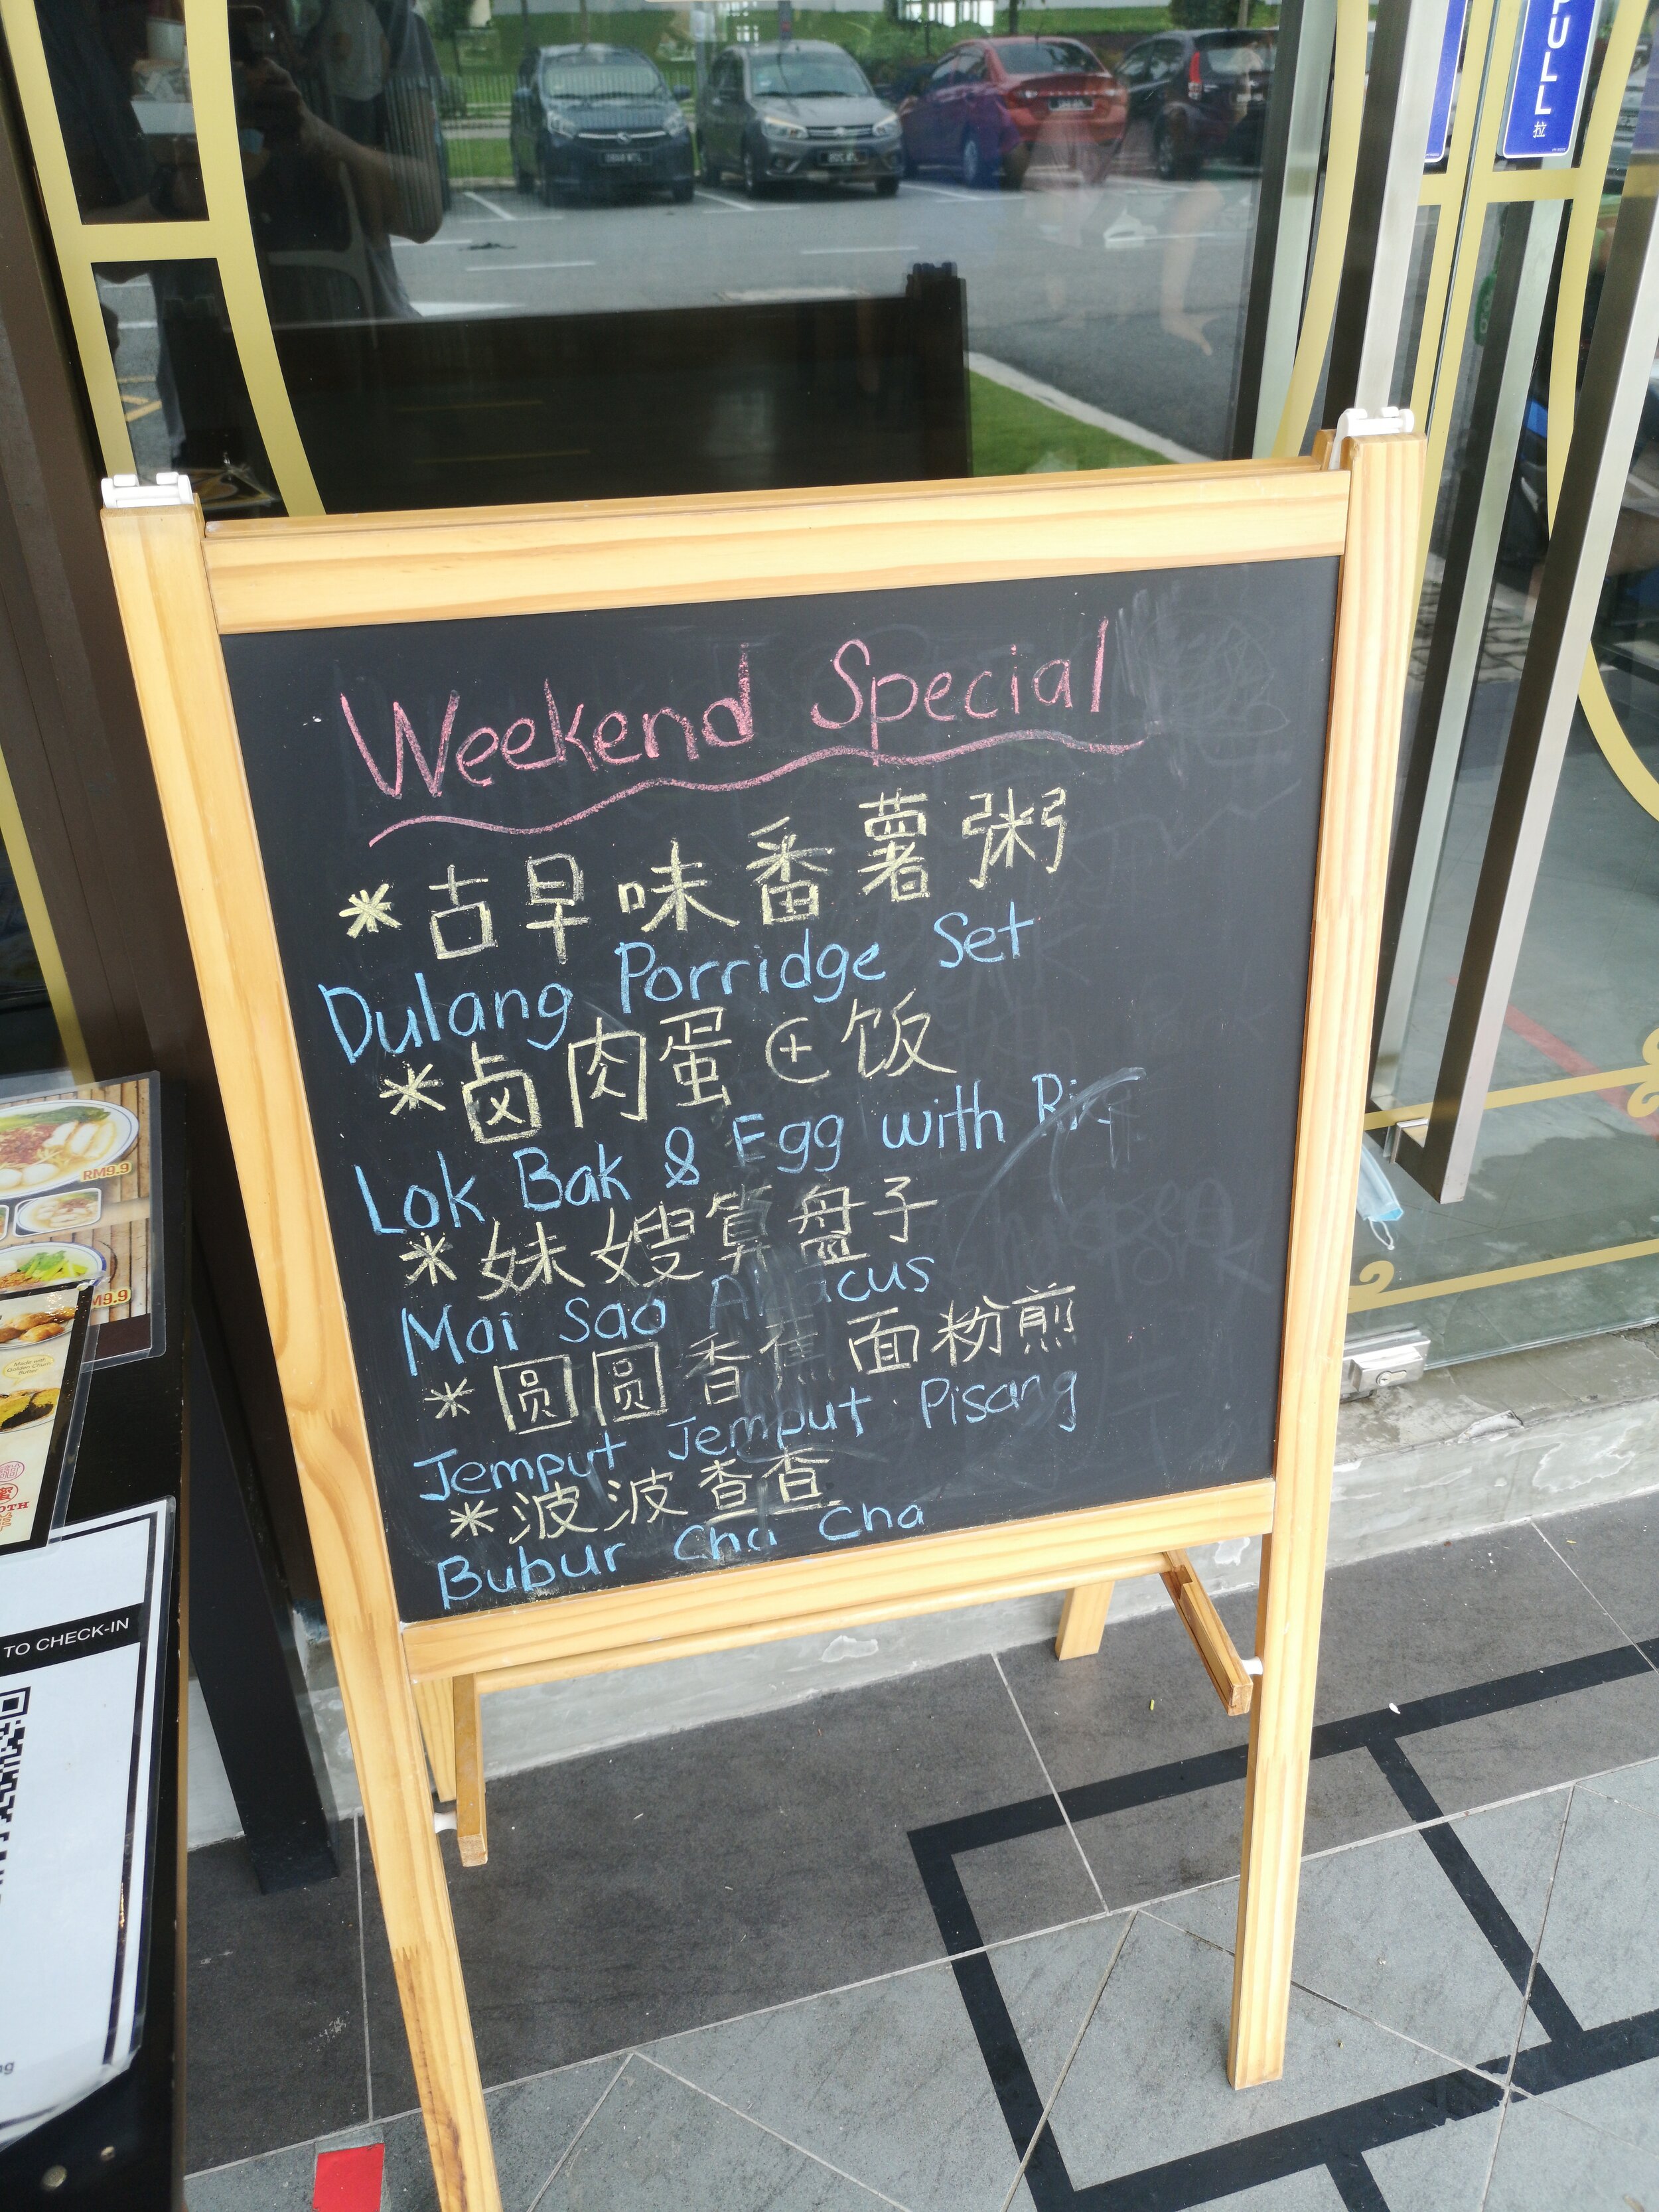 PULL
拉
Weekend Special
*古早味番薯粥
Dulang Porridge Set
*卤肉蛋⊕饭
Lok Bak & Egg with
*妹嫂算盘子
Moi Sao
*圆圆香蕉面粉煎
Jemput Jemput Pisang
*波波查查
Bubur Cha Cha
RM9.9
M9.9
Made with
Golden Churn
Butter
TO CHECK-IN